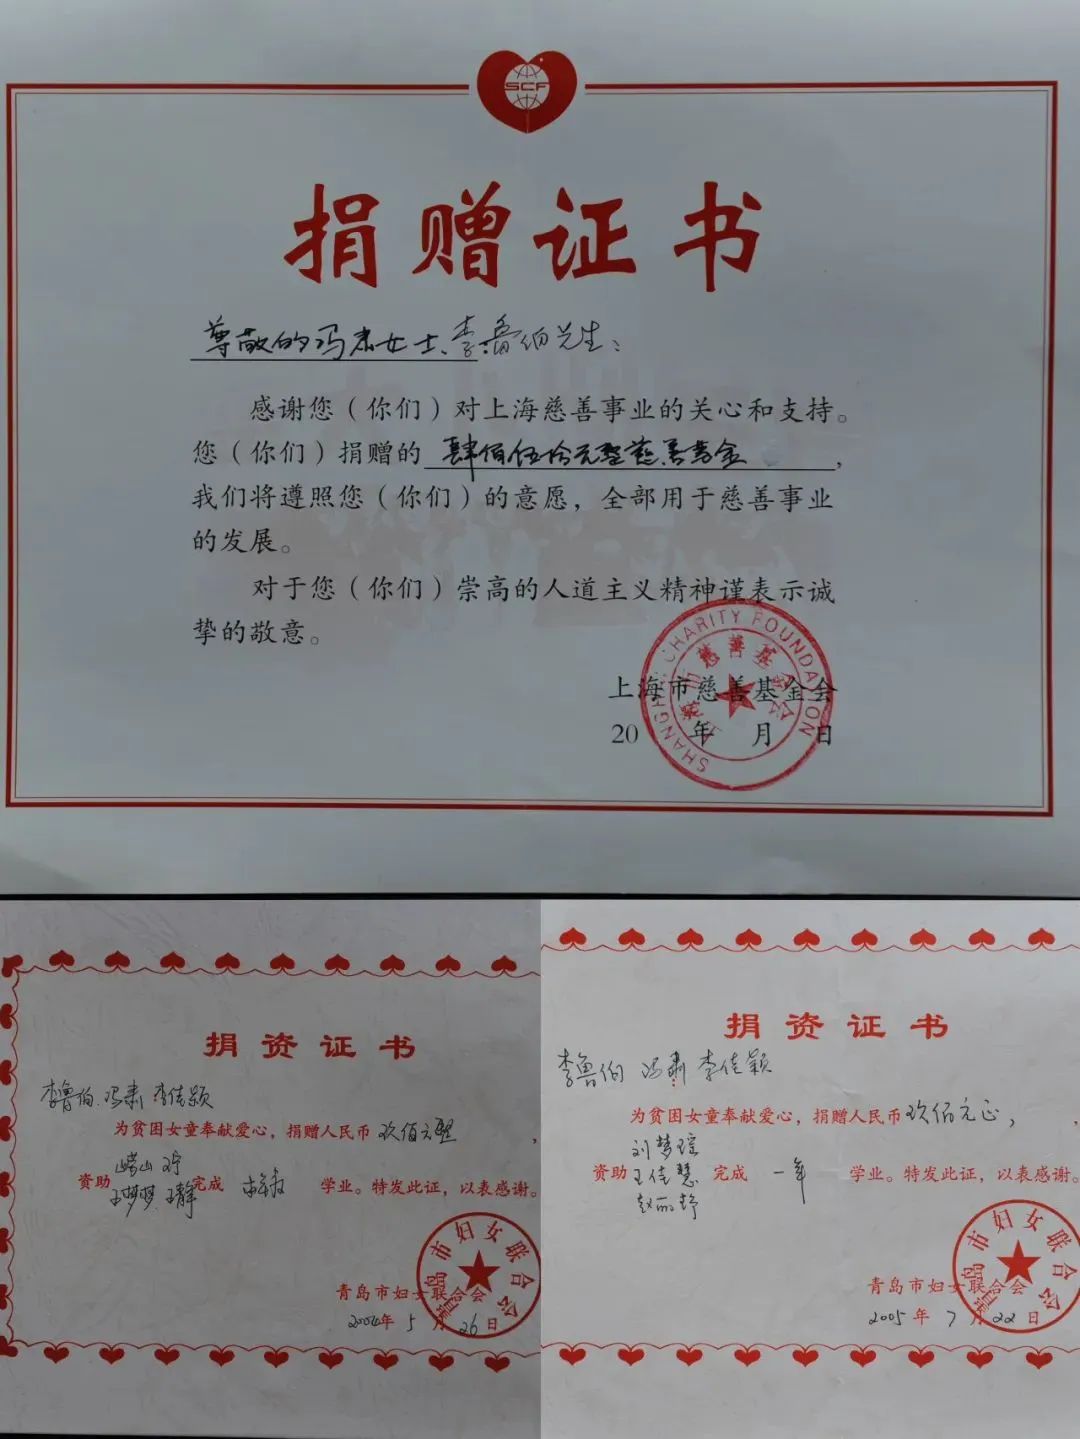 SCF
捐赠证书
尊敬的冯肃女士、李鲁伯先生：
感谢您（你们）对上海慈善事业的关心和支持。
您（你们）捐赠的 肆佰伍拾元整慈善基金，
我们将遵照您（你们）的意愿，全部用于慈善事业
的发展。
对于您（你们）崇高的人道主义精神谨表示诚
挚的敬意。
上海市慈善基金会
20 年 月 日
SHANGHAI CHARITY FOUNDATION
上海市慈善基金会
捐资证书
李鲁伯 冯肃 李佳颖
为贫困女童奉献爱心，捐赠人民币 玖佰元整，
崂山
资助 王梦梦 王静 完成 学业。特发此证，以表感谢。
青岛市妇女联合会
青岛市妇女联合会
5月26日
捐资证书
李鲁伯 冯肃 李佳颖
为贫困女童奉献爱心，捐赠人民币 玖佰元正，
刘梦瑶
资助 王佳慧 完成 一年 学业。特发此证，以表感谢。
赵丽舒
青岛市妇女联合会
青岛市妇女联合会
2005年7月22日